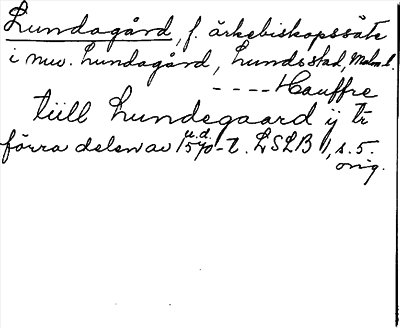 Lundagård, f. ärkebiskopssäte
i nuv. Lundagård, Lunds stad, Malm l.
- - - - Hauffre
tüll Lundegaard ij tr
u.d.
förra delen av 1570-t. LSLB 1, s. 5.
orig.